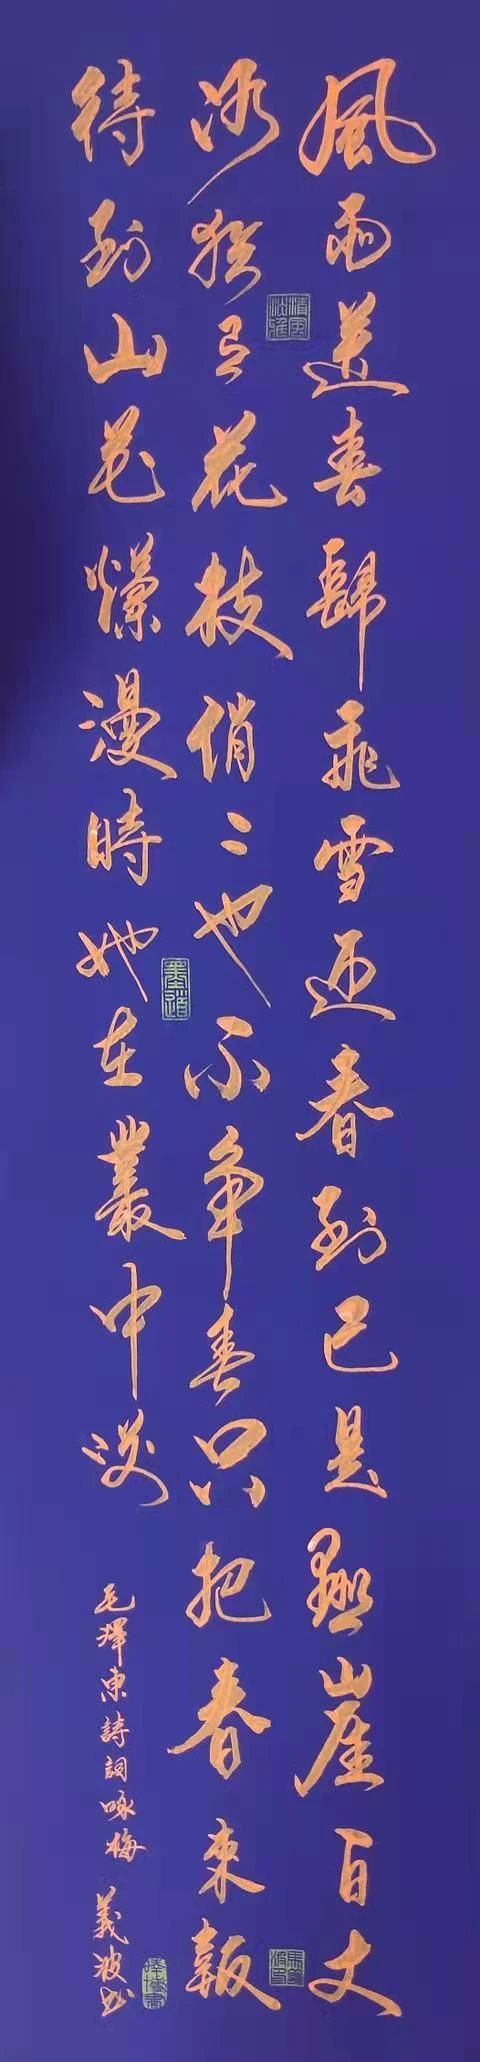 風雨送春歸飛雪迎春到已是懸崖百丈
冰猶有花枝俏〻也不争春只把春來報
待到山花爛漫時她在叢中咲
毛澤東詩詞咏梅 義波书
墨道